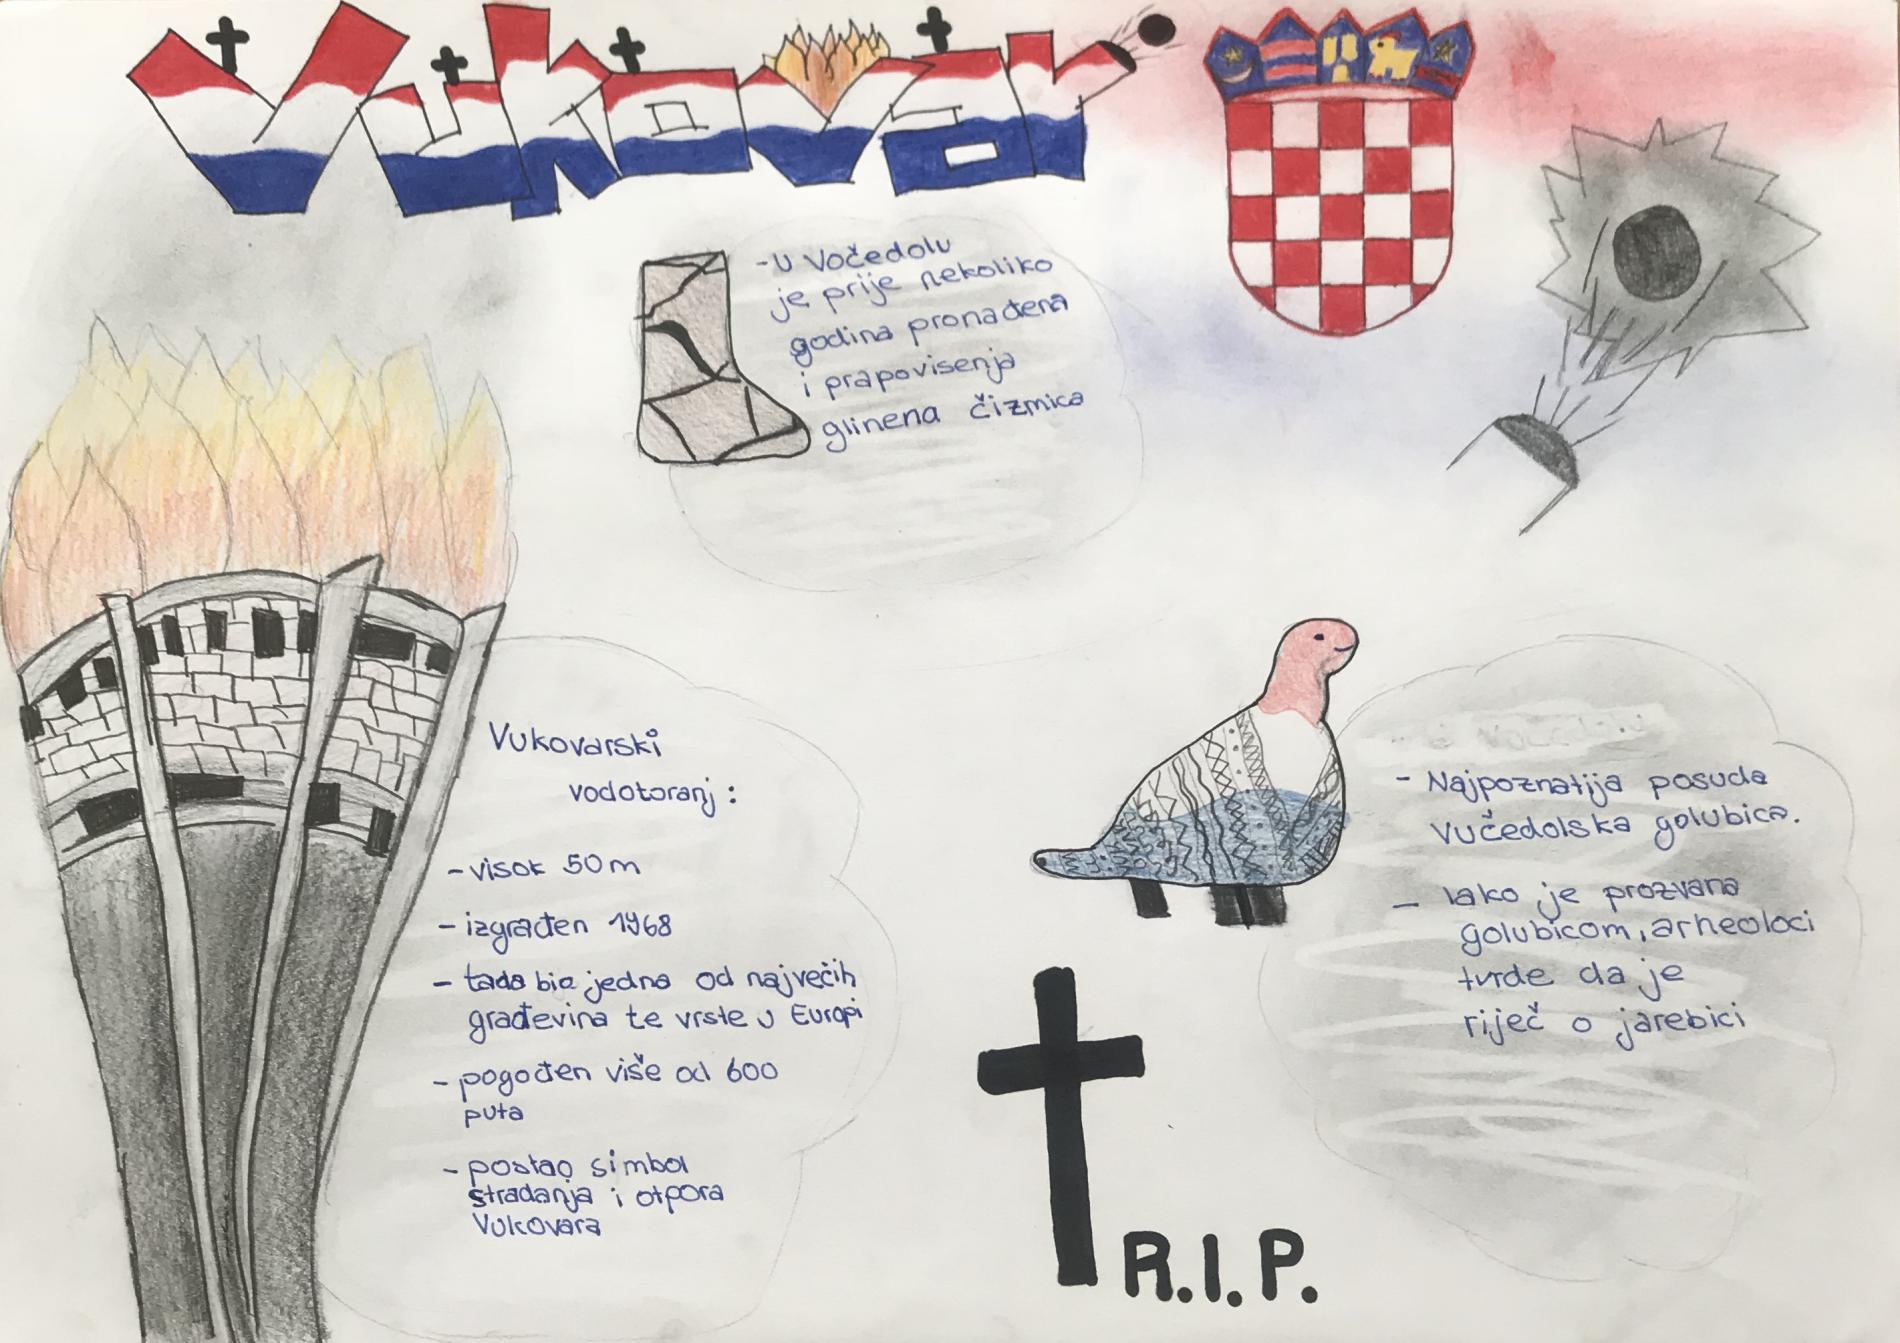 Vukovar
-U Vočedolu
je prije nekoliko
godina pronađena
i prapovisenja
glinena čizmica
Vukovarski
vodotoranj:
- visok 50 m
- izgrađen 1968
- tada bio jedna od največih
građevina te vrste u Europi
- pogođen više od 600
puta
- postao simbol
stradanja i otpora
Vukovara
- Najpoznatija posuda
Vučedolska golubica.
- Iako je prozvana
golubicom, arheoloci
tvrde da je
riječ o jarebici
R.I.P.